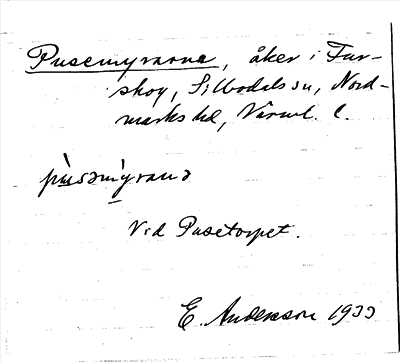 Pusemyrarna, åker i Fur-
skog, Sillbodals sn, Nord-
marks hd, Värml. l.
pùsəmýrana
Vid Pusetorpet.
E. Anderson 1933